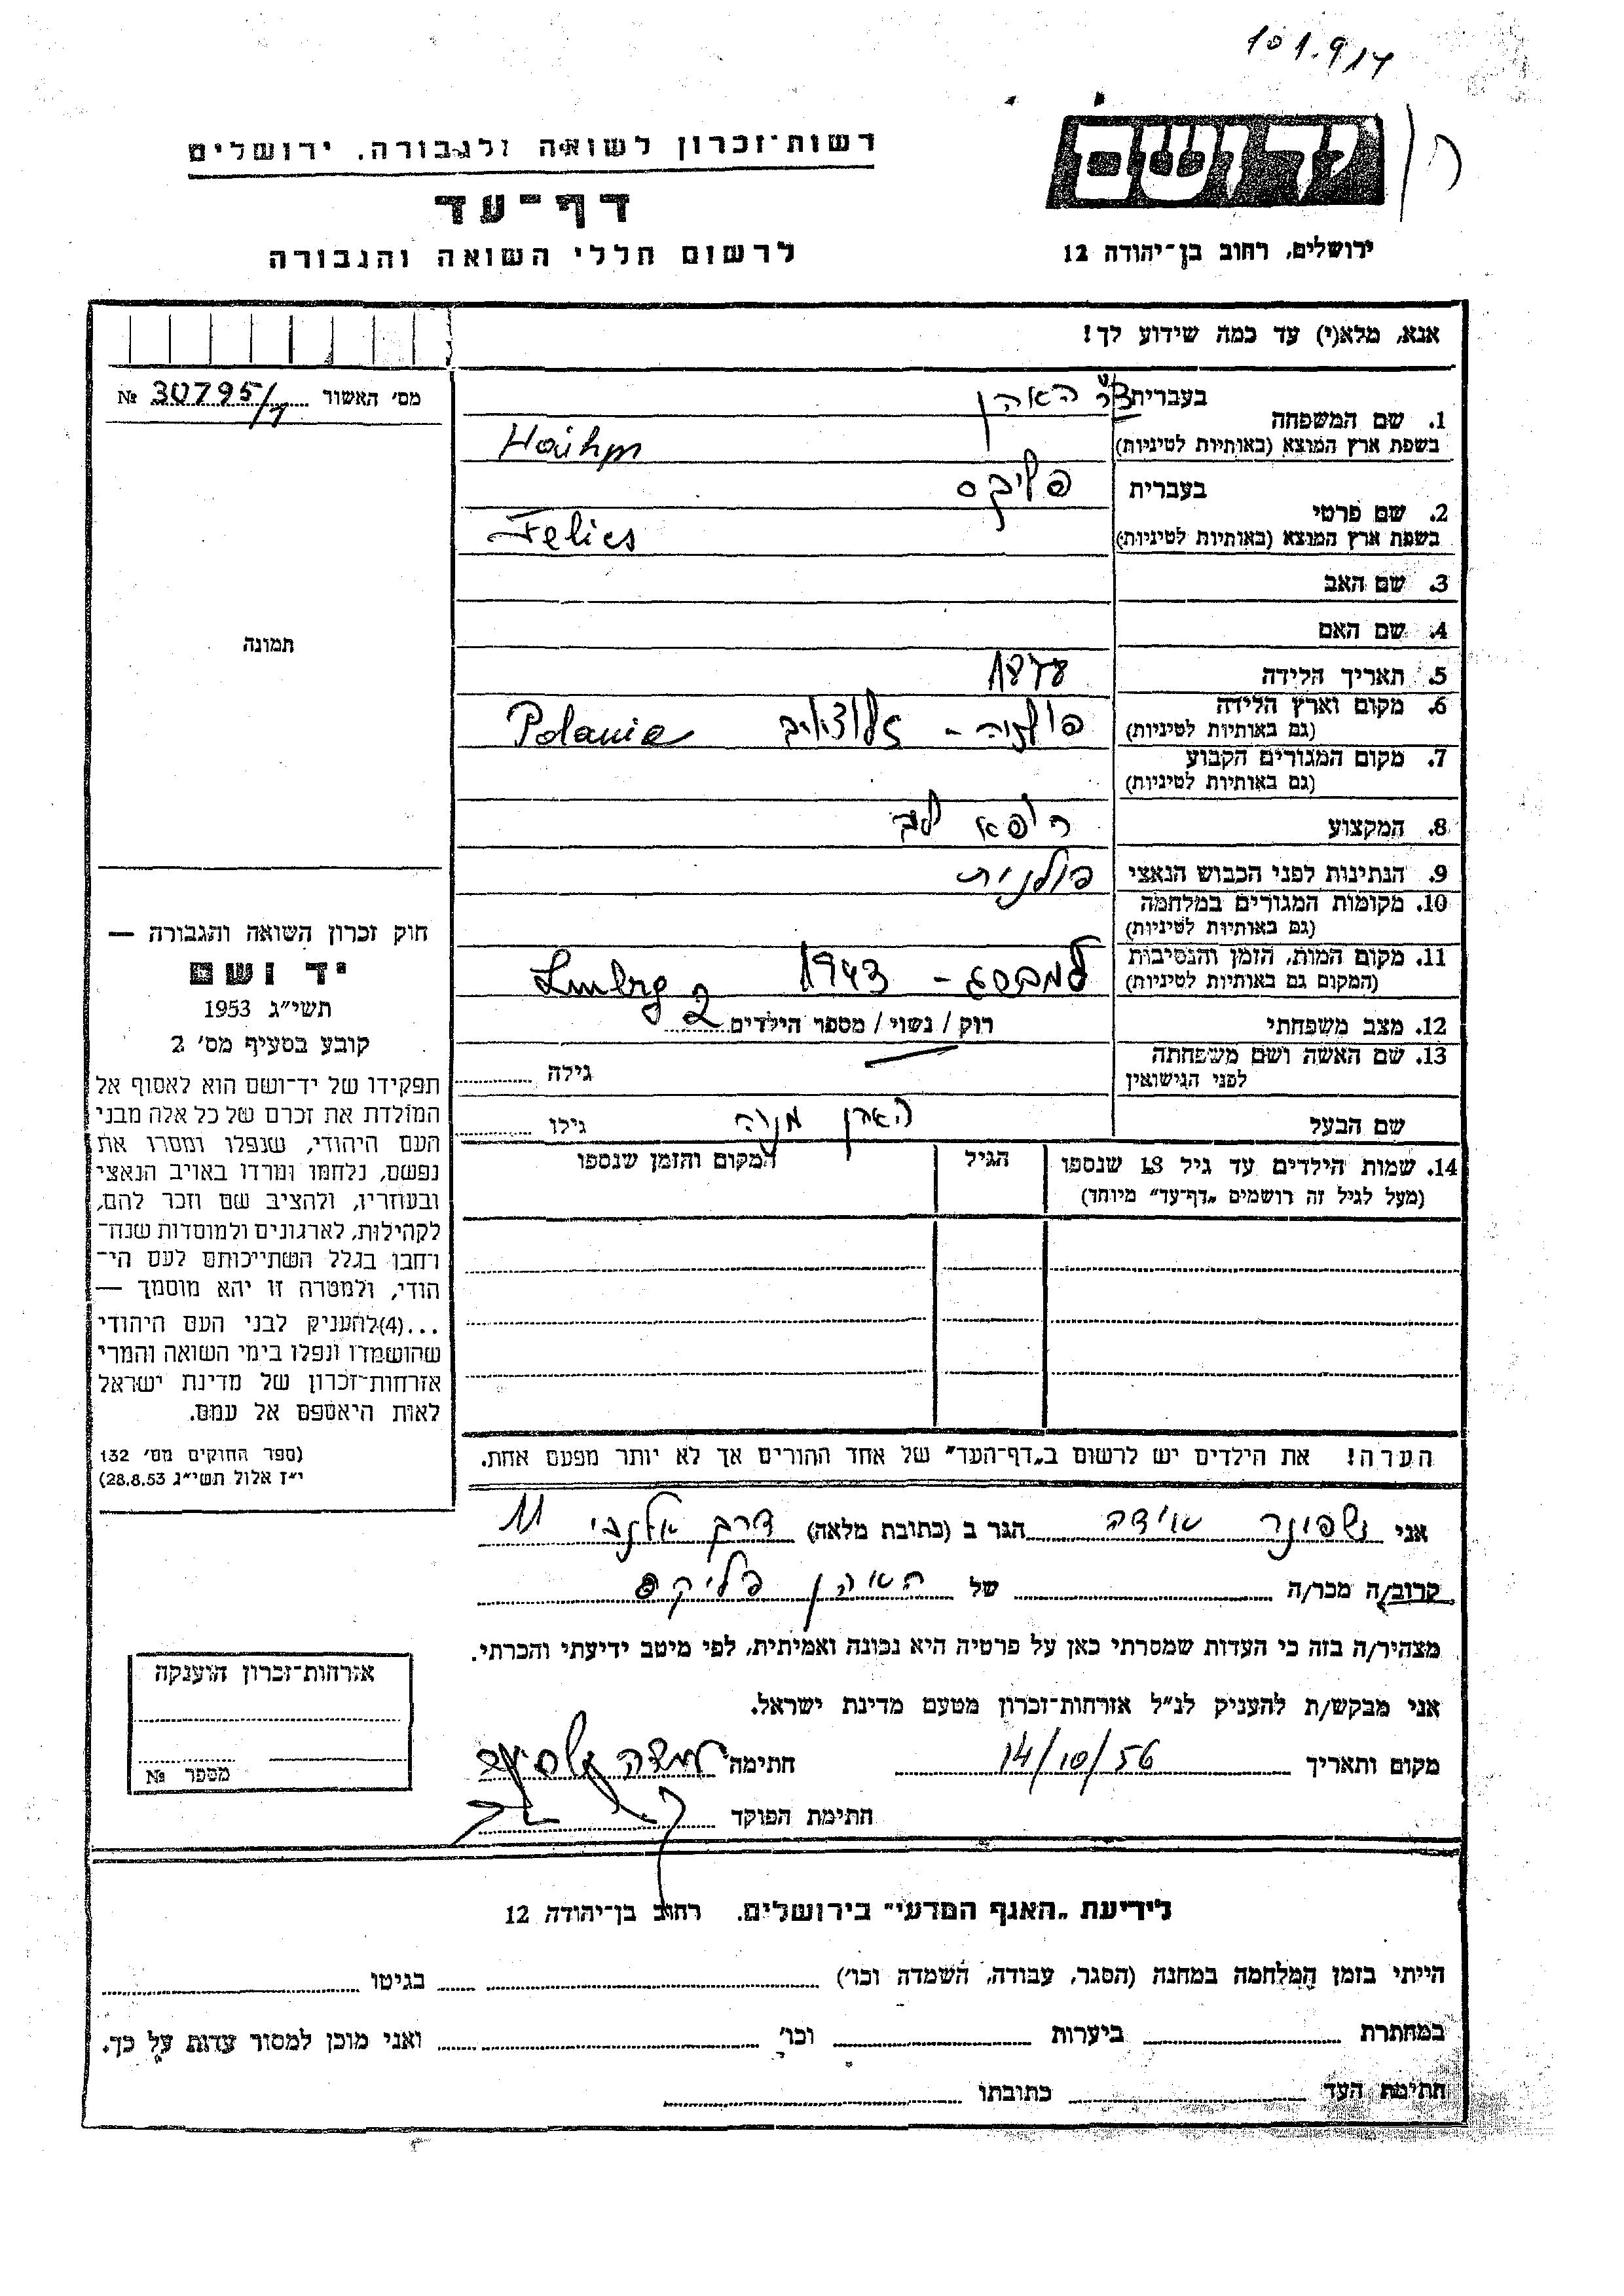 101.9/14
יד ושם
רשות־זכרון לשואה ולגבורה, ירושלים
דף־עד
לרשום חללי השואה והגבורה
ירושלים, רחוב בן־יהודה 12
אנא, מלא(י) עד כמה שידוע לך!
מס׳ האשור № 30795/1
1. שם המשפחה בעברית האהן
בשפת ארץ המוצא (באותיות לטיניות)
2. שם פרטי בעברית פליקס
בשפת ארץ המוצא (באותיות לטיניות) Felics
3. שם האב
4. שם האם
תמונה
5. תאריך הלידה 1878
6. מקום וארץ הלידה פולניה -
(גם באותיות לטיניות) Polania
7. מקום המגורים הקבוע
(גם באותיות לטיניות)
8. המקצוע רופא
9. הנתינות לפני הכבוש הנאצי פולנית
10. מקומות המגורים במלחמה
(גם באותיות לטיניות)
11. מקום המות, הזמן והנסיבות למברג - 1943
(המקום גם באותיות לטיניות) Lmbrg
12. מצב משפחתי רוק / נשוי / מספר הילדים 2
13. שם האשה ושם משפחתה
לפני הנישואין גילה
שם הבעל האהן גילו
14. שמות הילדים עד גיל 18 שנספו הגיל המקום והזמן שנספו
(מעל לגיל זה רושמים „דף־עד״ מיוחד)
חוק זכרון השואה והגבורה —
יד ושם
תשי״ג 1953
קובע בסעיף מס׳ 2
תפקידו של יד־ושם הוא לאסוף אל
המולדת את זכרם של כל אלה מבני
העם היהודי, שנפלו ומסרו את
נפשם, נלחמו ומרדו באויב הנאצי
ובעוזריו, ולהציב שם וזכר להם,
לקהילות, לארגונים ולמוסדות שנח־
רבו בגלל השתייכותם לעם הי־
הודי, ולמטרה זו יהא מוסמך —
...(4)להעניק לבני העם היהודי
שהושמדו ונפלו בימי השואה והמרי
אזרחות־זכרון של מדינת ישראל
לאות היאספם אל עמם.
(ספר החוקים מס׳ 132
י״ז אלול תשי״ג 28.8.53)
הערה! את הילדים יש לרשום ב„דף־העד״ של אחד ההורים אך לא יותר מפעם אחת.
אני אידה הגר ב (כתובת מלאה) דרך אלנבי 11
קרוב/ה מכר/ה של האהן פליקס
מצהיר/ה בזה כי העדות שמסרתי כאן על פרטיה היא נכונה ואמיתית, לפי מיטב ידיעתי והכרתי.
אני מבקש/ת להעניק לנ״ל אזרחות־זכרון מטעם מדינת ישראל.
מקום ותאריך 14/10/56 חתימה
חתימת הפוקד
אזרחות־זכרון הוענקה
מספר №
לידיעת „האגף המדעי״ בירושלים. רחוב בן־יהודה 12
הייתי בזמן המלחמה במחנה (הסגר, עבודה, השמדה וכו׳) בגיטו
במחתרת ביערות וכו׳ ואני מוכן למסור עדות על כך.
חתימת העד כתובתו